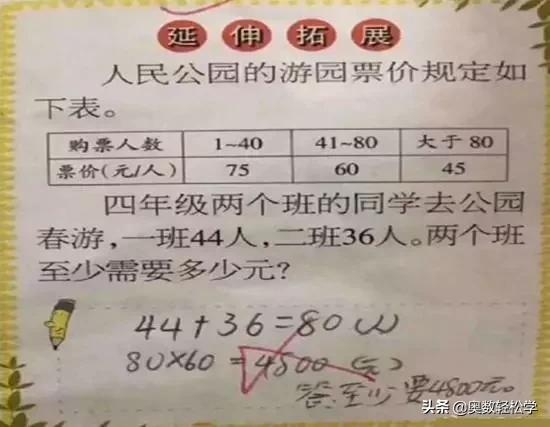 延伸拓展
人民公园的游园票价规定如
下表。
购票人数 1~40 41~80 大于80
票价(元/人) 75 60 45
四年级两个班的同学去公园
春游,一班44人,二班36人。两个班
至少需要多少元?
44+36=80(人)
80×60=4800(元)
答:至少要4800元。
头条@奥数轻松学